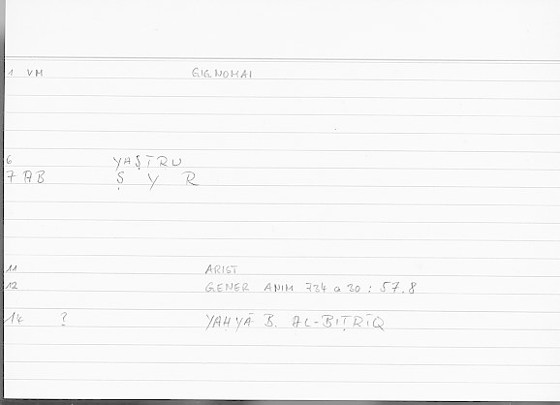 1 VM GIGNOMAI
6 YAṢĪRU
7 AB Ṣ Y R
11 ARIST
12 GENER ANIM 724 a 20 : 57.8
14 ? YAḤYĀ B. AL-BIṬRĪQ